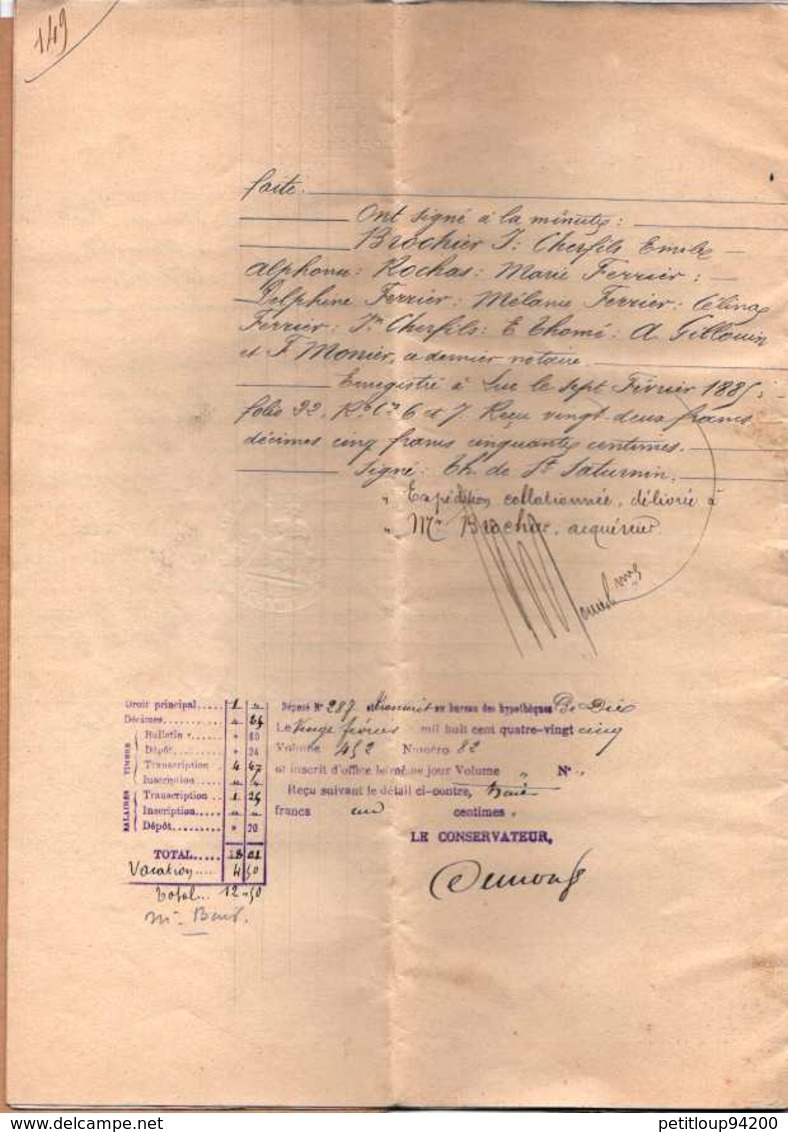 149
faite.
Ont signé à la minute :
Brochier J : Cherfils Emile
Alphonse : Rochas : Marie Ferrier :
Delphine Ferrier : Mélanie Ferrier : Célina
Ferrier : Jn Cherfils : E Thomé : A. Gillouin
et F Monier, ce dernier notaire.
Enregistré à Luc le sept Février 1885 ;
folio 32, Ro Cs 6 et 7. Reçu vingt deux francs
décimes cinq francs cinquante centimes.
Signé : Th. de St Saturnin.
" Expédition collationnée, délivrée à
" Mr Brochier, acquéreur.
Droit principal..... 1 "
Décimes............ " 25
TIMBRE
Bulletin ". " 60
Dépôt. " 24
Transcription . 4 47
Inscription..... " "
SALAIRES
Transcription . . 1 25
Inscription..... " "
Dépôt......... " 20
TOTAL..... 8 01
Vacation..... 4 50
Total... 12 50
Déposé No 287 et transcrit au bureau des hypothèques De Die
Le Vingt février mil huit cent quatre-vingt cinq
Volume 452 Numéro 82
et inscrit d'office le même jour Volume " No "
Reçu suivant le détail ci-contre,
francs un centimes .
LE CONSERVATEUR,
petitloup94200